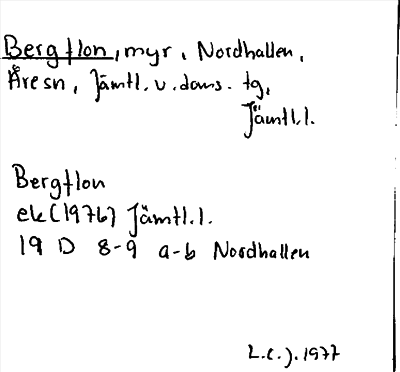 Bergflon, myr, Nordhallen,
Åresn, Jämtl. v. doms. tg,
Jämtl.l.
Bergflon
ek (1976) Jämtl.l.
19 D 8-9 a-b Nordhallen
L.C.J. 1977